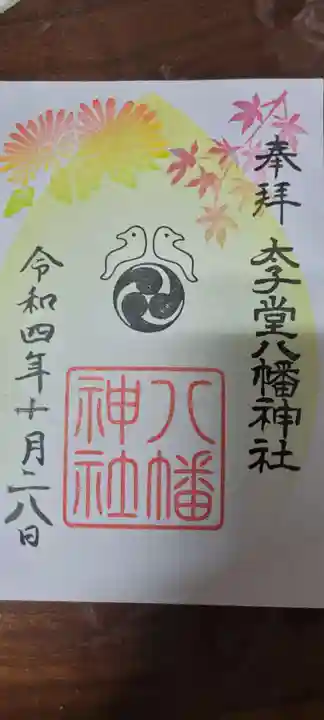 奉拝 太子堂八幡神社
八幡
神社
令和四年十月二八日